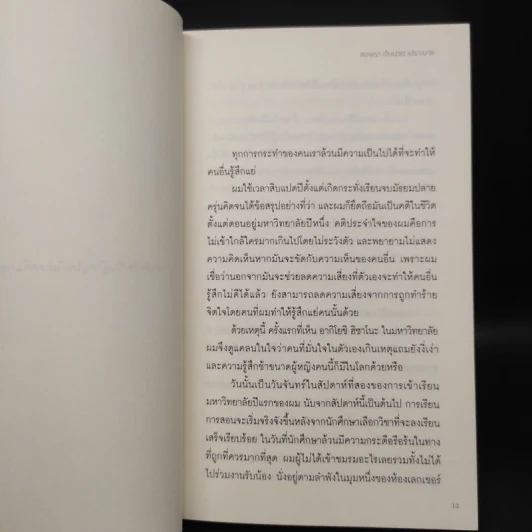 ทุกการกระทำของคนเราล้วนมีความเป็นไปได้ที่จะทำให้
คนอื่นรู้สึกแย่
ผมใช้เวลาสิบแปดปีตั้งแต่เกิดกระทั่งเรียนจบมัธยมปลาย
ครุ่นคิดจนได้ข้อสรุปอย่างที่ว่า และผมก็ยึดถือมันเป็นคติในชีวิต
ตั้งแต่ตอนอยู่มหาวิทยาลัยปีหนึ่ง คติประจำใจของผมคือการ
ไม่เข้าใกล้ใครมากเกินไปโดยไม่ระวังตัว และพยายามไม่แสดง
ความคิดเห็นหากมันจะขัดกับความเห็นของคนอื่น เพราะผม
เชื่อว่านอกจากมันจะช่วยลดความเสี่ยงที่ตัวเองจะทำให้คนอื่น
รู้สึกไม่ดีได้แล้ว ยังสามารถลดความเสี่ยงจากการถูกทำร้าย
จิตใจโดยคนที่ผมทำให้รู้สึกแย่คนนั้นด้วย
ด้วยเหตุนี้ ครั้งแรกที่เห็น อากิโยชิ ฮิซาโนะ ในมหาวิทยาลัย
ผมจึงดูแคลนในใจว่าคนที่มั่นใจในตัวเองเกินเหตุแถมยังงี่เง่า
และความรู้สึกช้าขนาดผู้หญิงคนนี้ก็มีในโลกด้วยหรือ
วันนั้นเป็นวันจันทร์ในสัปดาห์ที่สองของการเข้าเรียน
มหาวิทยาลัยปีแรกของผม นับจากสัปดาห์นี้เป็นต้นไป การเรียน
การสอนจะเริ่มจริงจังขึ้นหลังจากนักศึกษาเลือกวิชาที่จะลงเรียน
เสร็จเรียบร้อย ในวันที่นักศึกษาล้วนมีความกระตือรือร้นในทาง
ที่ถูกที่ควรมากที่สุด ผมผู้ไม่ได้เข้าชมรมอะไรเลยรวมทั้งไม่ได้
ไปร่วมงานรับน้อง นั่งอยู่ตามลำพังในมุมหนึ่งของห้องเลกเชอร์